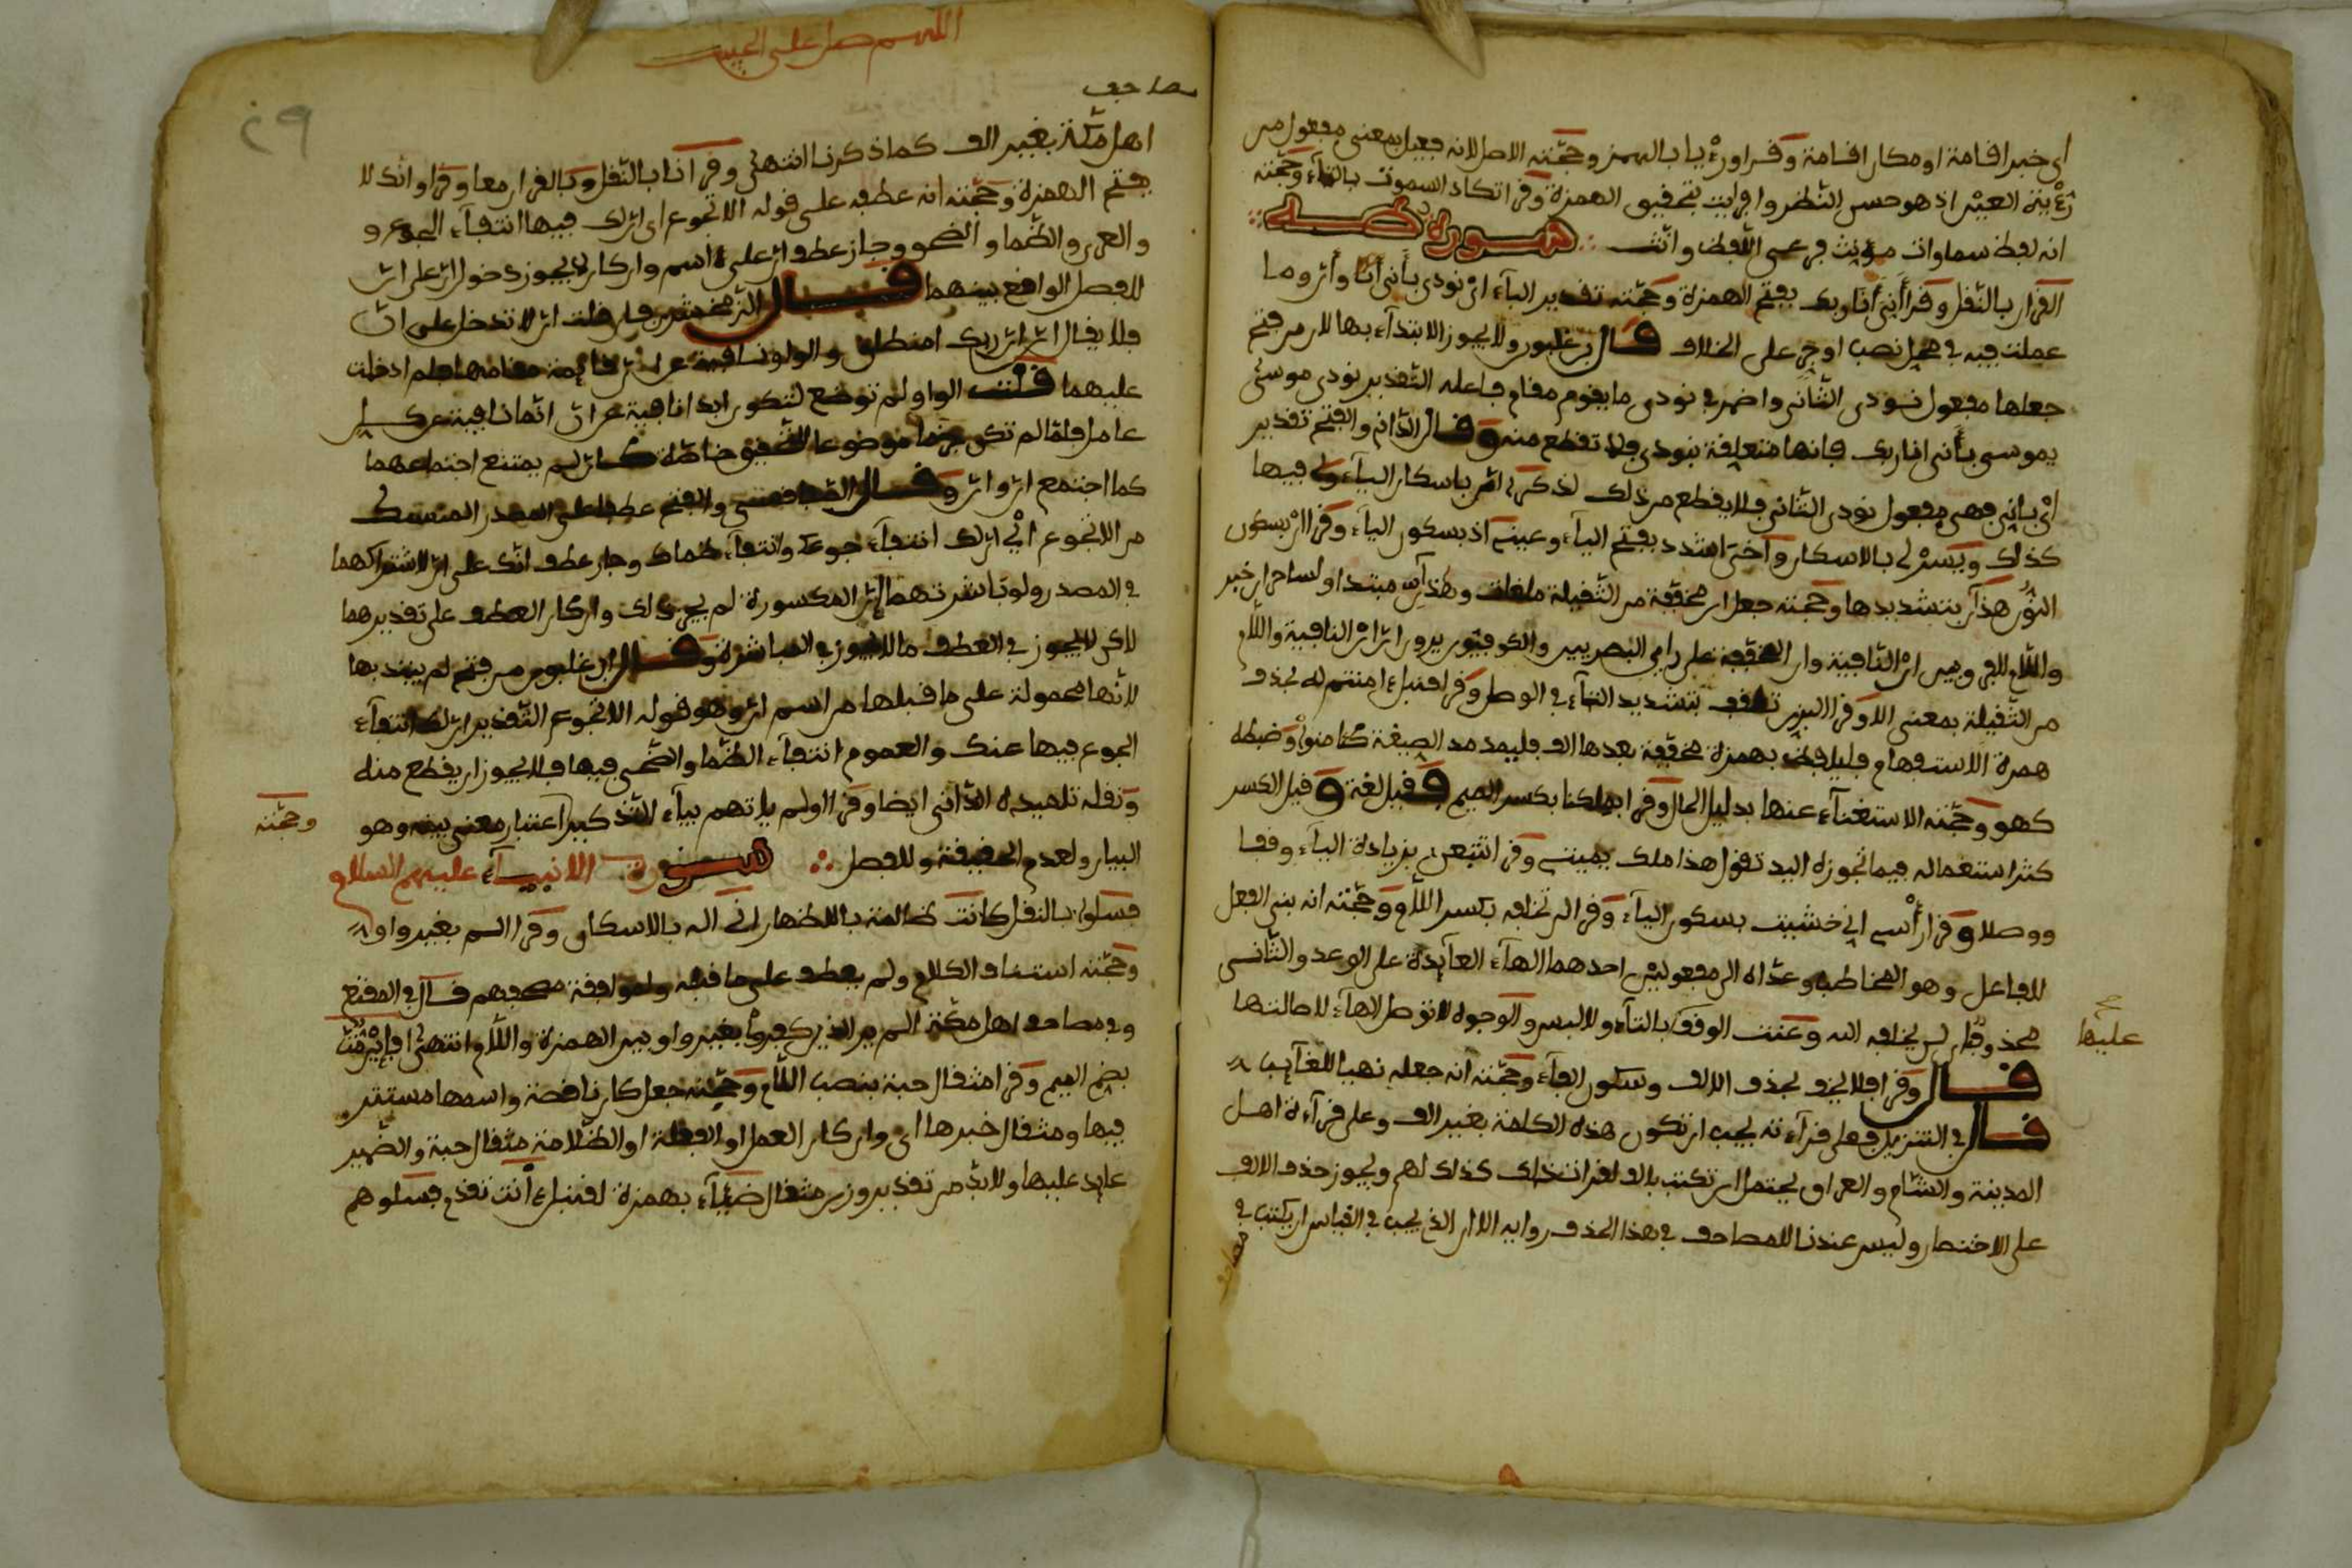 اي خير اقامة او مكان اقامة وقرا ورءيا بالهمز وحجته الاصل لانه فعيل بمعنى مفعول من
رؤية العين اذ هو حسن النظر وافرايت بتحقيق الهمزة وقرا تكاد السموت بالتاء وحجته
ان لفظ سماوات مؤنث فرعى اللفظ وانث سورة طه
القران بالنقل وقرا أني أنا ربك بفتح الهمزة وحجته تقدير الباء اي نودي بأني أنا وأن وما
عملت فيه في محل نصب او جر على الخلاف قال بن غلبون ولا يجوز الابتداء بها لان من فتح
جعلها مفعول نودي الثاني واضمر في نودي ما يقوم مقام فاعله التقدير نودي موسى
يموسى بأني انا ربك فانها متعلقة بنودي فلا تقطع منه وقال الداني والفتح تقدير
اي بأني فهي مفعول نودي الثاني فلا يقطع من ذلك لذكري ان باسكان الياء ولي فيها
كذلك ويسر لي بالاسكان وأخي اشدد بفتح الياء وعيني اذ بسكون الياء وقرا ان بسكون
النون هذآن بتشديدها وحجته جعل ان مخففة من الثقيلة ملغات وهذان مبتدا ولساحران خبر
واللام للفرق بين ان النافية وان المخففة على راي البصريين والكوفيون يرون ان ان النافية واللام
من الثقيلة بمعنى الا وقرا البزي تلقف بتشديد التاء في الوصل وقرا قنبل ءامنتم له بحذف
همزة الاستفهام قليلفظ بهمزة محققة بعدها الف فليمد مد الصيغة كئامنوا وضبطه
كهو وحجته الاستغناء عنها بدليل الحال وقرا بملكنا بكسر الميم فقيل لغة وقيل الكسر
كثر استعماله فيما تحوزه اليد تقول هذا ملك يميني وقرا تتبعني بزيادة الياء وقفا
ووصلا وقرا رأسي اني خشيت بسكون الياء وقرا لن تخلفه بكسر اللام وحجته انه بنى الفعل
للفاعل وهو المخاطب وعداه الى مفعولين احدهما الهاء العآيدة على الوعد والثاني
محذوف اي لن يخلفه الله وعنت الوقف بالتاء ولا لبس والوجوه لا توصل الهاء لاصالتها
عليها
قال وقرا فلا يخف بحذف الالف وسكون الفاء وحجته انه جعله نهيا للغائب
قال في التنزيل فعلى قراءته يجب ان تكون هذه الكلمة بغير الف وعلى قراءة اهل
المدينة والشام والعراق يحتمل ان تكتب بالف لقراءت ذلك كذلك لهم ويجوز حذف الالف
على الاختصار وليس عندنا للمصاحف في هذا الحذف رواية الا ان الذي يجب في القياس ان يكتب في
مصاحف
اللهم صل على الحبيب
مصاحف
اهل مكة بغير الف كما ذكرنا انتهى وقرا نا بالنقل وبالقران معا وقرا وانك لا
بفتح الهمزة وحجته انه عطفه على قوله الا تجوع اي ان لك فيها انتفاء الجوع و
والعري والظما والضحو وجاز عطف ان على اسم وان كان لا يجوز دخول ان على ان
للفصل الواقع بينهما قال الزمخشري فان قلت ان لا تدخل على ان
فلا يقال ان ان ربك امنطلق والواو نائبة عن ان قائمة مقامها فلم ادخلت
عليهما قلت الواو لم توضع لتكون ابدا نائبة عن ان انما نائبة عن كل
عامل فلما لم تكن حرفا موضوعا للتحقيق خاصة كان لم يمتنع اجتماعهما
كما اجتمع ان وان وقال الصفاقسي والفتح عطفا على المصدر المنسبك
من الا تجوع اي ان لك انتفاء جوعك وانتفاء ظماك وجاز عطف انك على ان لاشتراكهما
في المصدر ولو باشرتهما ان المكسورة لم يجز ذلك وان كان العطف على تقديرهما
لاكن لا يجوز في العطف ما لا يجوز في المباشرة وقال ابن غلبون من فتح لم يبتد بها
لانها محمولة على ما قبلها من اسم ان وهو قوله الا تجوع التقدير ان لك انتفاء
الجوع فيها عنك والعموم انتفاء الظما والضحى فيها فلا يجوز ان يقطع منه
ونقله تلميذه الداني ايضا وقرا اولم ياتهم بياء التذكير اعتبار معنى بينه وهو
وحجته
البيان ولعدم الحقيقة وللفصل سورة الانبياء عليهم السلام
فسلوا بالنقل كانت ظالمة بالاظهار اني اله بالاسكان وقرا الم بغير واو
وحجته استئناف الكلام ولم يعطف على ما قبله ولموافقة مصحفهم قال في المقنع
وفي مصاحف اهل مكة الم ير الذين كفروا بغير واو بين الهمزة واللام انتهى افإين مت
بضم الميم وقرا مثقال حبة بنصب اللام وحجته جعل كان ناقصة واسمها مستتر
فيها ومثقال خبرها اي وان كان العمل او الفعلة او الظلامة مثقال حبة والضمير
عايد عليها ولا بد من تقدير وزن مثقال ضئاء بهمزة لقنبل ءأنت تقدم فسلوهم
٢٩